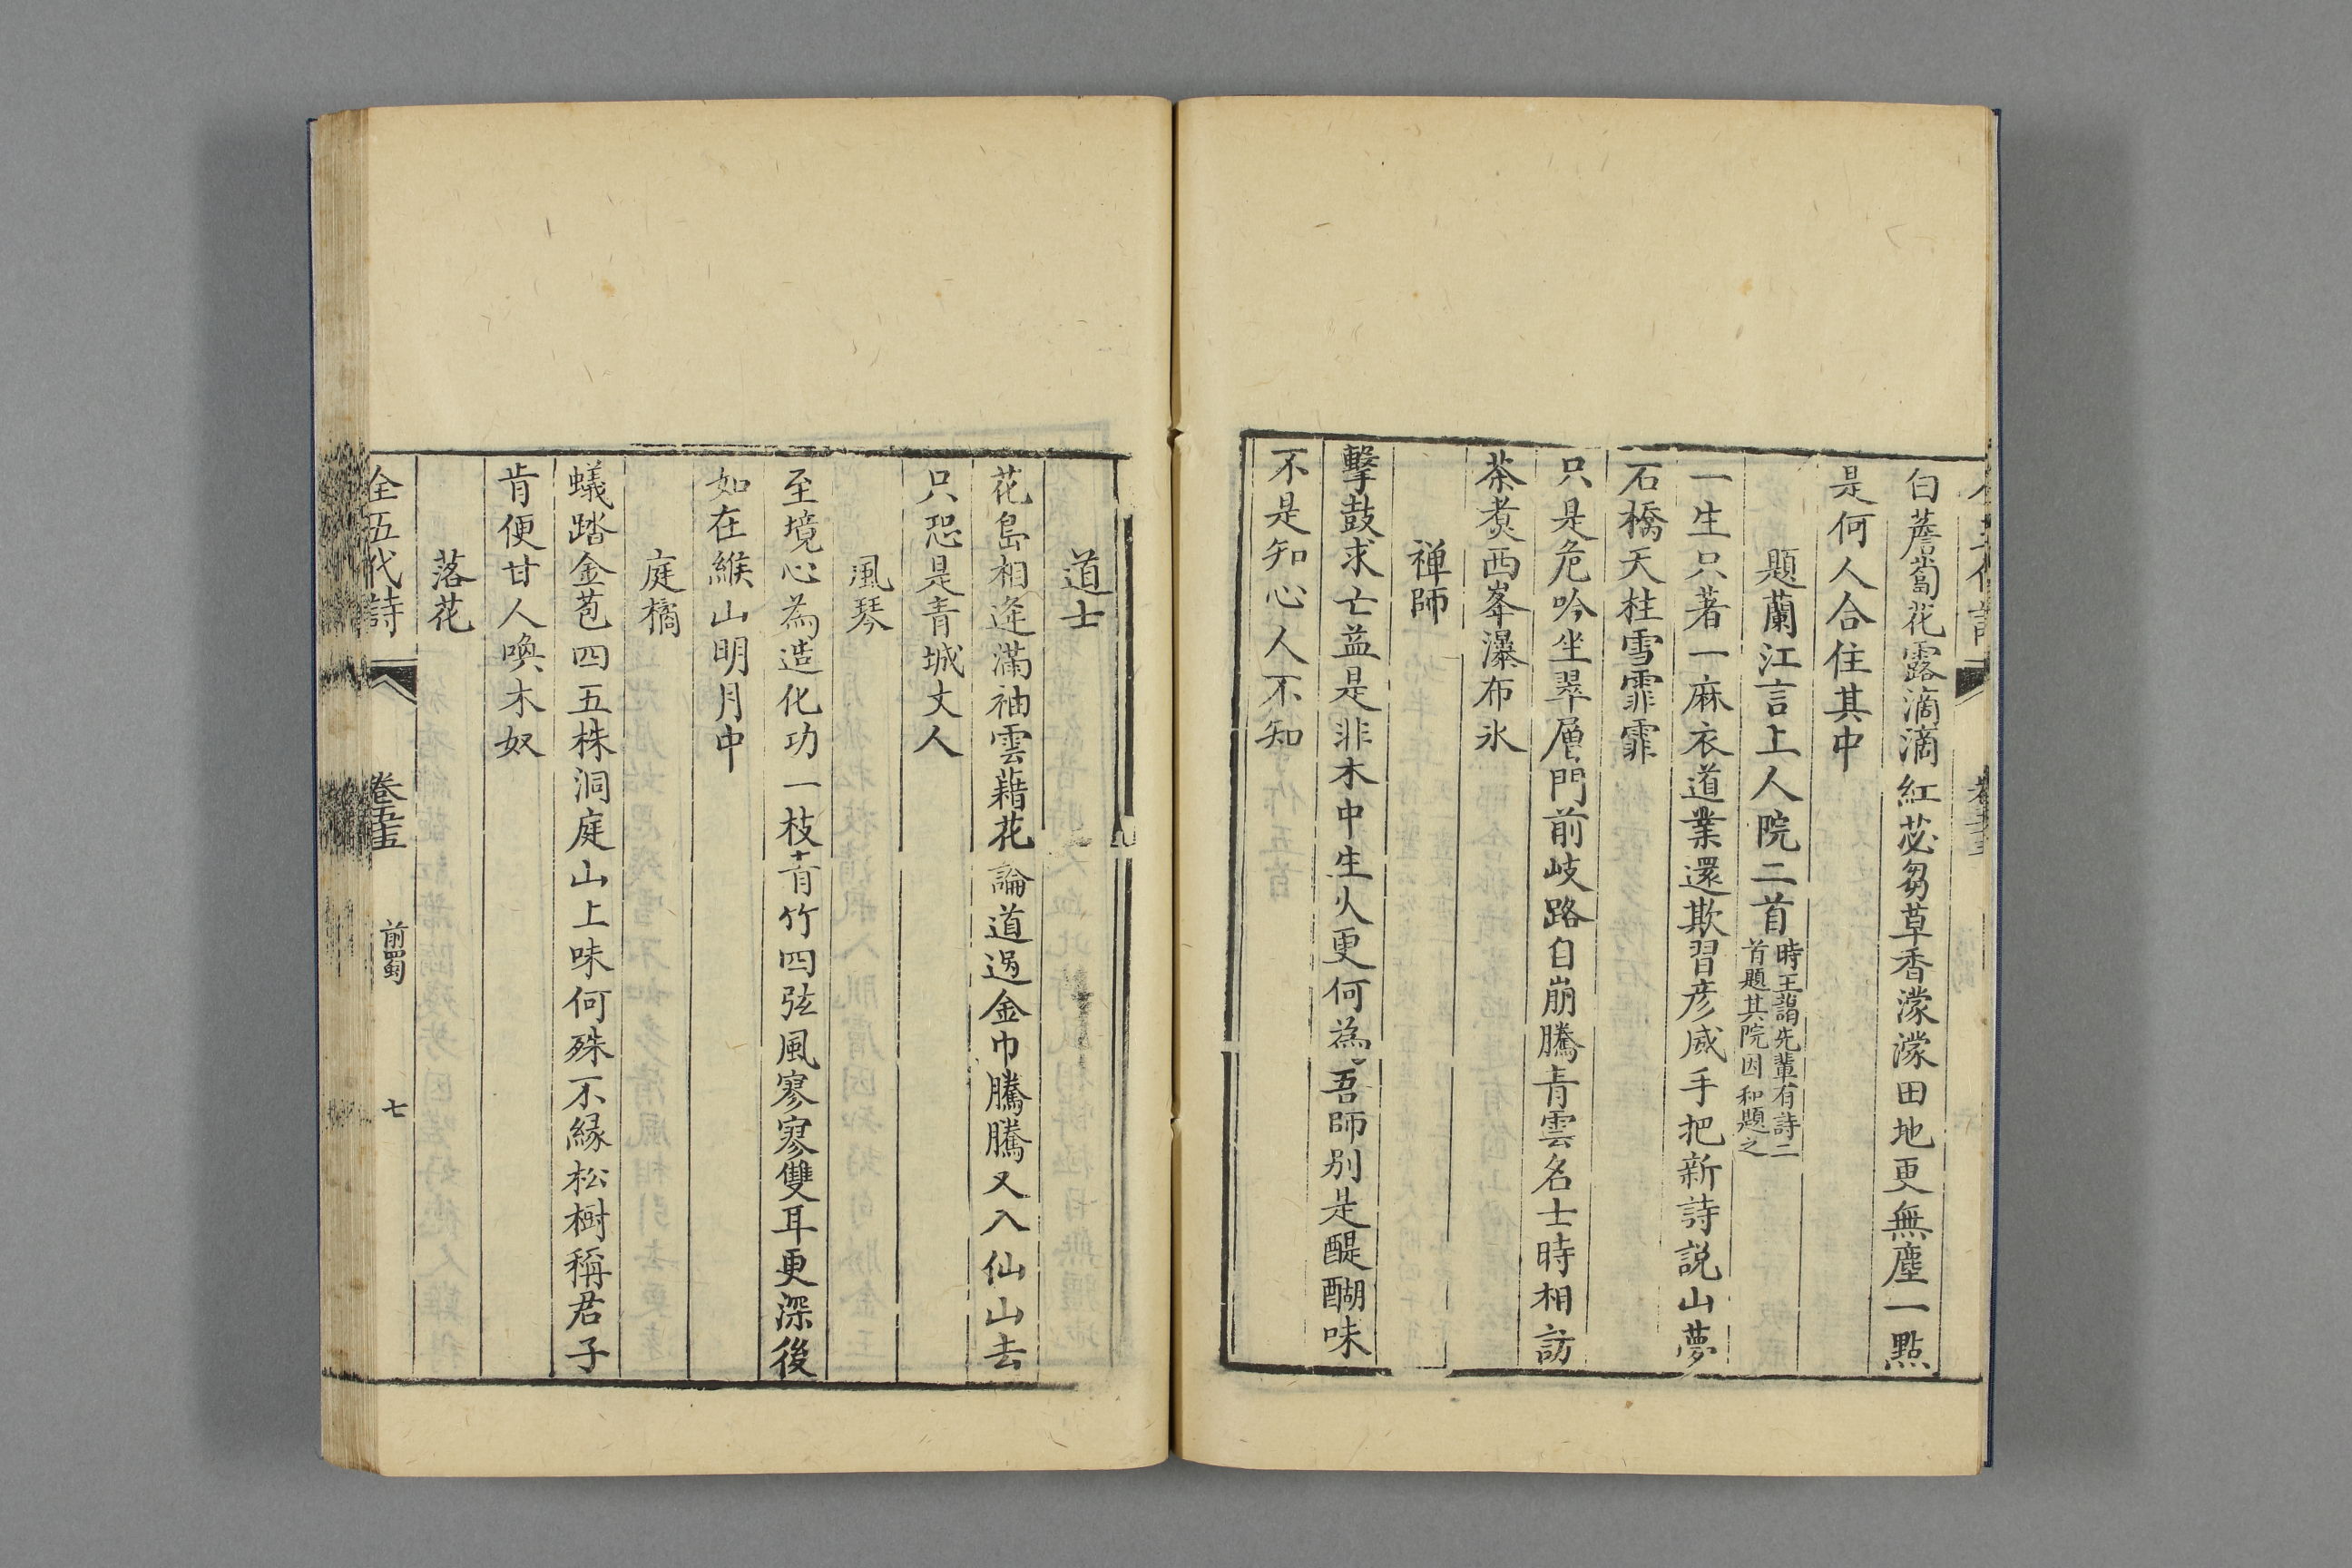 白薝蔔花露滴滴紅苾芻草香濛濛田地更無塵一點
是何人合住其中
題蘭江言上人院二首時王謁先輩有詩二
首題其院因和題之
一生只著一麻衣道業還欺習彦威手把新詩説山夢
石橋天柱雪霏霏
只是危吟坐翠層門前岐路自崩騰青雲名士時相訪
茶煑西峯瀑布氷
禅師
擊鼓求亡益是非木中生火更何為吾師别是醍醐味
不是知心人不知
道士
花島相逢滿袖雲藉花論道過金巾騰騰又入仙山去
只恐是青城丈人
風琴
至境心為造化功一枝青竹四弦風寥寥雙耳更深後
如在緱山明月中
庭橘
蟻踏金苞四五株洞庭山上味何殊不縁松樹稱君子
肯便甘人喚木奴
落花
全五代詩
卷五十五
前蜀
七